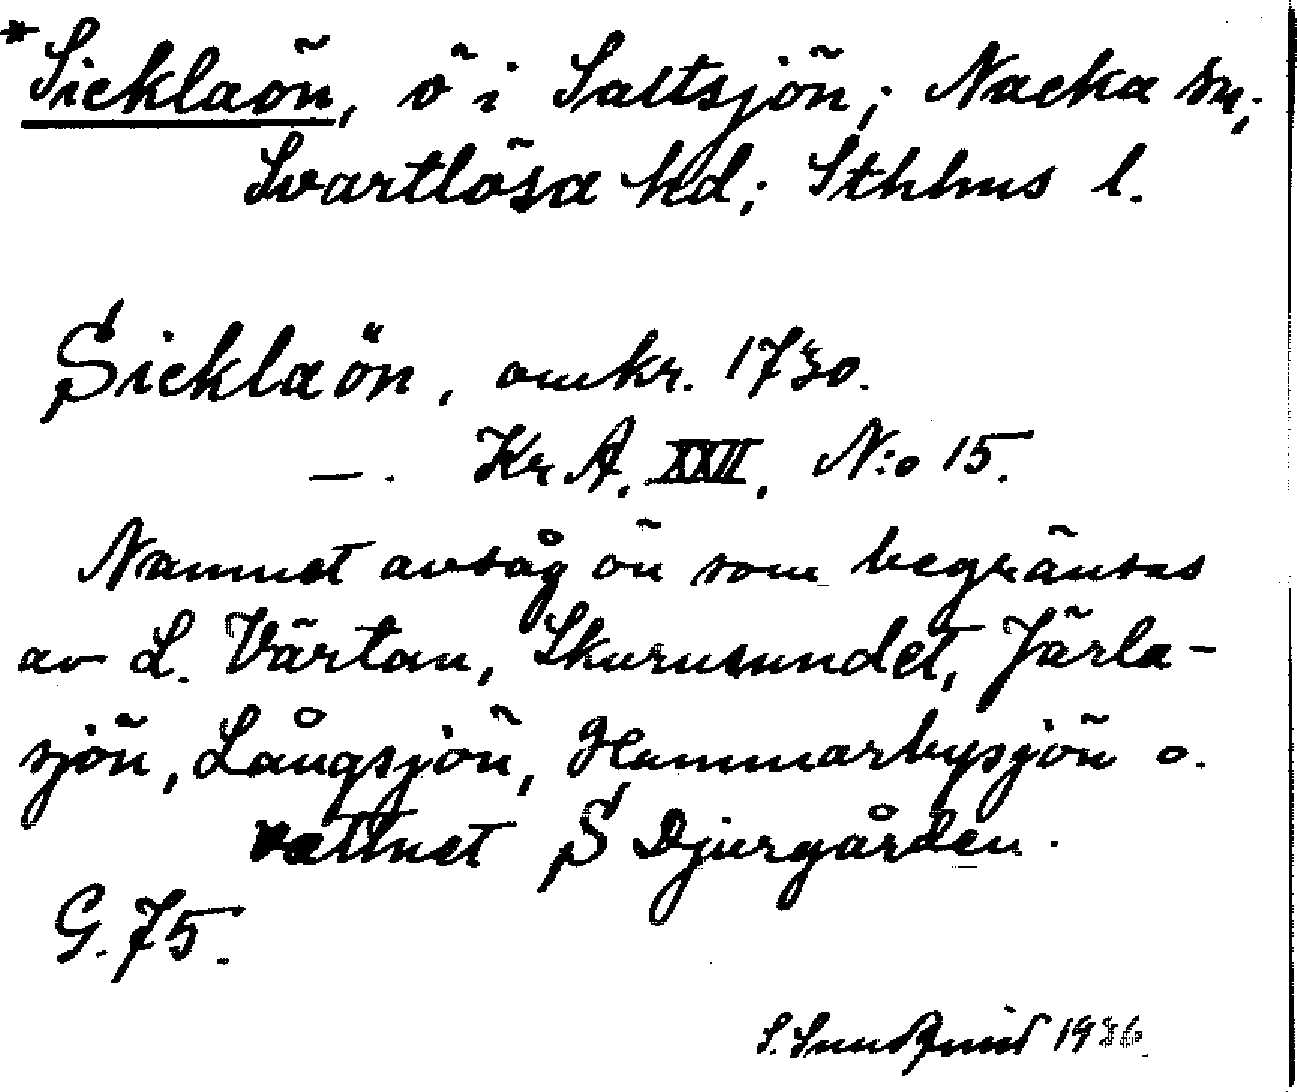 *Sicklaön, ö i Saltsjön; Nacka sn;
Svartlösa hd; Sthlms l.
Sicklaön, omkr. 1730.
—. Kr A. XXII. N:o 15.
Namnet avsåg ön som begränsas
av L. Värtan, Skurusundet, Järla-
sjön, Långsjön, Hammarbysjön o.
vattnet S Djurgården.
G. 75.
S. Sundqvist 1936.